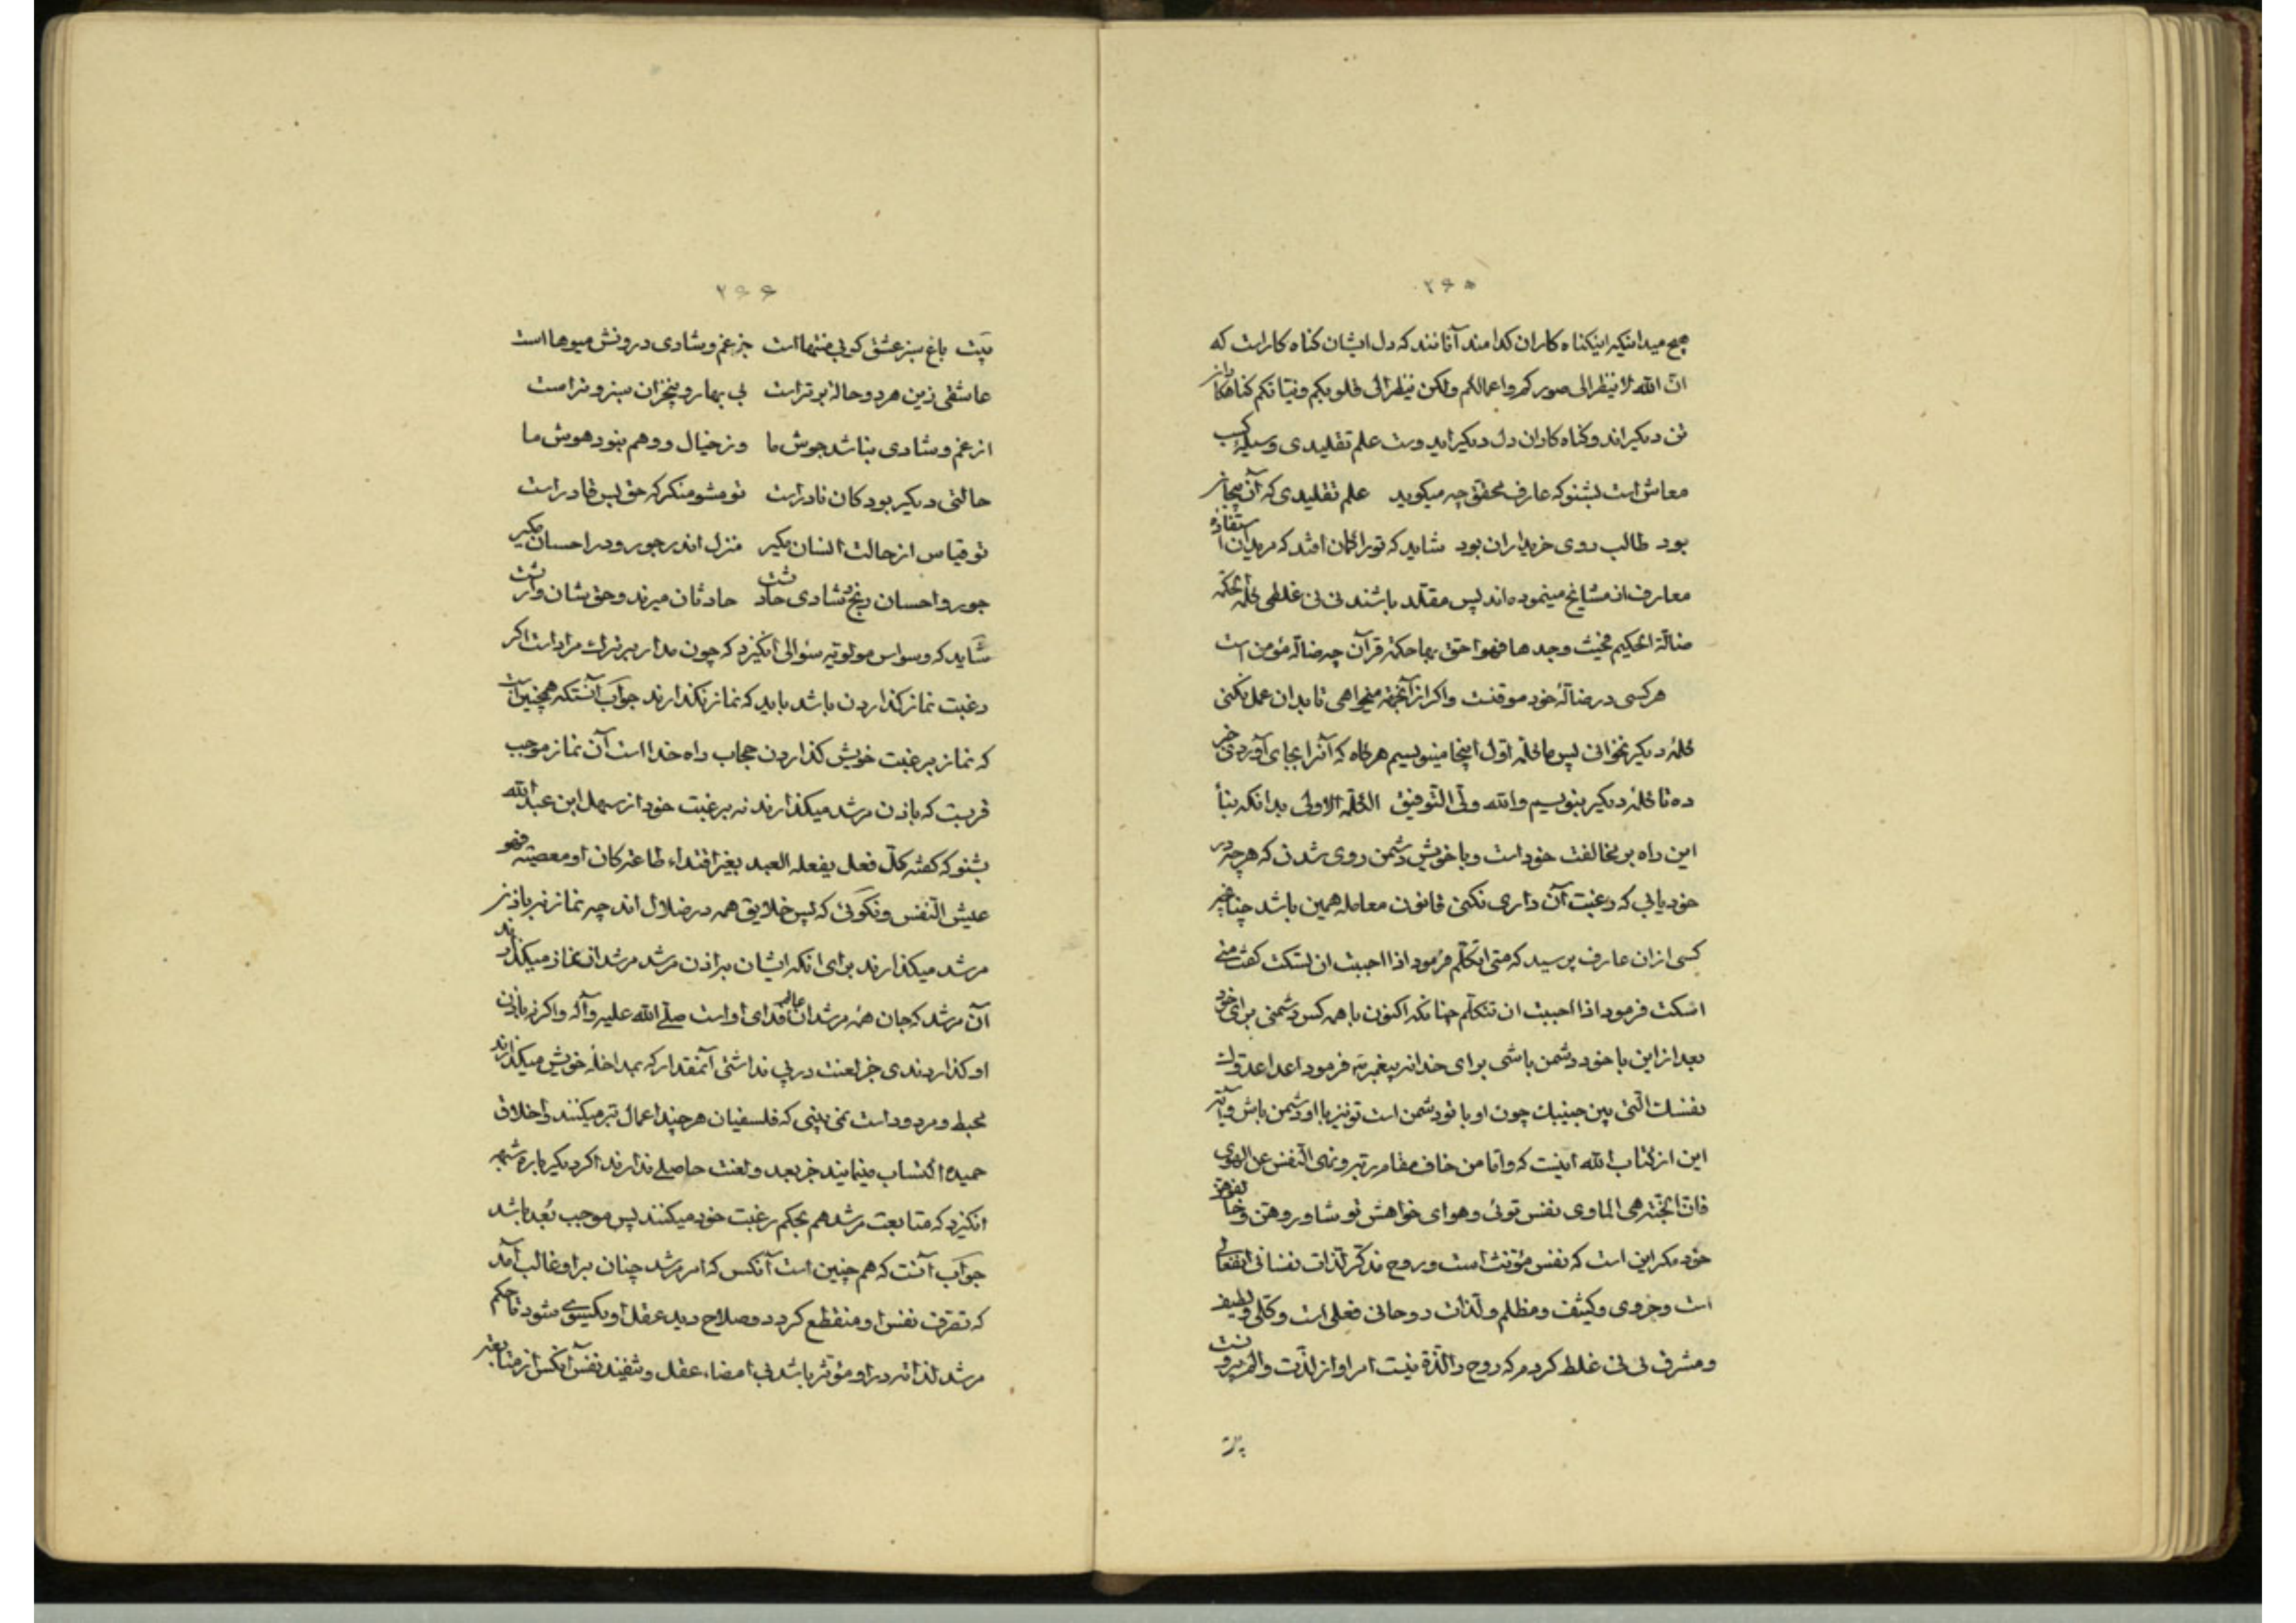 ۲۶۵
هیچ میدانیکه اینکناه کاران کدامند آنانند که دل ایشان کناه کاراست که
انّ الله لا ینظر الی صورکم و اعمالکم ولکن ینظر الی قلوبکم و نیاتکم کناهکاران
تن دیکراند و کناه کاران دل دیکراید وست علم تقلیدی وسیلهٔ کسب
معاش است بشنو که عارف محقق چه میکوید علم تقلیدی که آن بیجان
بود طالب روی خریداران بود شاید که تورا کمان افتد که مریدان استفاده
معارف از مشایخ مینموده‌اند پس مقلد باشند نی نی غلطی کلمة الحکمة
ضالّة الحکیم فحیث وجدها فهو احق بها حکمة قرآن چه ضالهٔ مؤمن است
هرکسی در ضالهٔ خود موقنست واکر از آنجمه میخواهی تا بدان عمل نکنی
کلمهٔ دیکر نخوانی پس ما کلمه اول اینجا مینویسیم هرکاه که آنرا بجای آوردی خبر
ده تا کلمهٔ دیکر بنویسیم والله ولّی التّوفیق الکلمة الاولی بدانکه بنأ
این راه بر مخالفت خود است و با خویش دشمن روی شدن که هرچه در
خود یابی که رغبت آن داری نکنی قانون معامله همین باشد چنانچه
کسی ازان عارف پرسید که متی اتکلّم فرمود اذا احببت ان تسکت کفت متی
اسکت فرمود اذا احببت ان تتکلّم چنانکه اکنون با همه کس دشمنی برای خود
بعد ازاین با خود دشمن باشی برای خدا نه پیغمبر ته فرمود اعدا عدوک
نفسک الّتی بین جنبیک چون او با تو دشمن است تو نیز با او دشمن باش وآیه
این از کتاب الله اینست که واما من خاف مقام ربّه ونهی النّفس عن الهوی
فانّ الجنّة هی الماوی نفس توئی و هوای خواهش تو شاوروهن وخالفوهن
خود مکر این است که نفس مؤنث است و روح مذکّر لذات نفسانی انفعالی
است وجزوی وکثیف ومظلم ولذات روحانی فعلی است وکلّی ولطیف
ومشرف نی نی غلط کردم که روح را لذّة نیست امر او از لذّت والم برونست
بیت
۲۶۶
بیت باغ سبز عشق کو بی منتها است جز غم و شادی درونش میوها است
عاشقی زین هردو حالة برتراست بی بهار و بیخزان سبز و تراست
از غم و شادی نباشد جوش ما وز خیال و وهم نبود هوش ما
حالتی دیکر بود کان نادراست تو مشو منکر که حق بس قادراست
تو قیاس از حالت انسان مکیر منزل اندر جور و در احسان مکیر
جور و احسان رنج و شادی حادثست حادثان میرند و حق شان وارثست
شاید که وسواس مولویه سئوالی انکیزد که چون مدار بر ترک مراداست اکر
رغبت نماز کذاردن باشد باید که نماز نکذارند جواب آنستکه همچنین است
که نماز بر رغبت خویش کذاردن حجاب راه خدا است آن نماز موجب
قربت که باذن مرشد میکذارند نه بر رغبت خود از سهل ابن عبدالله
بشنو که کفته کلّ فعل یفعله العبد بغیر اقتداء طاعة کان او معصیته فهو
عیش النّفس ونکوئی که پس خلایق همه در ضلال اند چه نماز نه باذن
مرشد میکذارند برای انکه ایشان براذن مرشد مرشدان نماز میکذارند
آن مرشد که جان همه مرشدان عالم فدای اواست صلّے الله علیه وآله واکر نه باذن
او کذاردندی جز لعنت در پی نداشتی آنمقدار که بمداخلهٔ خویش میکذارند
محبط و مردود است نمی بینی که فلسفیان هرچند اعمال بّر میکنند واخلاق
حمیده اکتساب مینمایند جز بعد ولعنت حاصلے ندارند اکر دیکر باره شبهه
انکیزد که متابعت مرشد هم بحکم رغبت خود میکنند پس موجب بُعد باشد
جواب آنست که هم چنین است آنکس که امر مرشد چنان بر او غالب آمد
که تصرف نفس او منقطع کردد وصلاح دید عقل او یکسوی شود تا حکم
مرشد لذاته در او مؤثر باشد بی امضاء عقل وتنفیذ نفس آنکس از متابعت